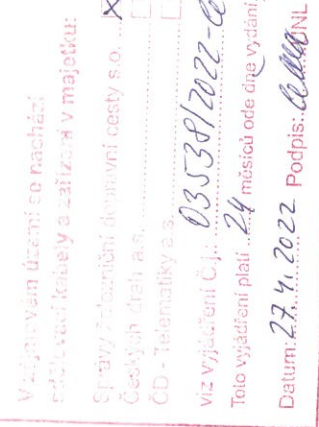 V zájmovém území se nachází
sdělovací kabely a zařízení v majetku:
Správy železniční dopravní cesty s.o. ...X
Českých drah a.s. ...
ČD - Telematiky a.s. ...
viz vyjádření Č.j.: 03538/2022-
Toto vyjádření platí ..24 měsíců ode dne vydání
Datum: 27.4.2022 Podpis: